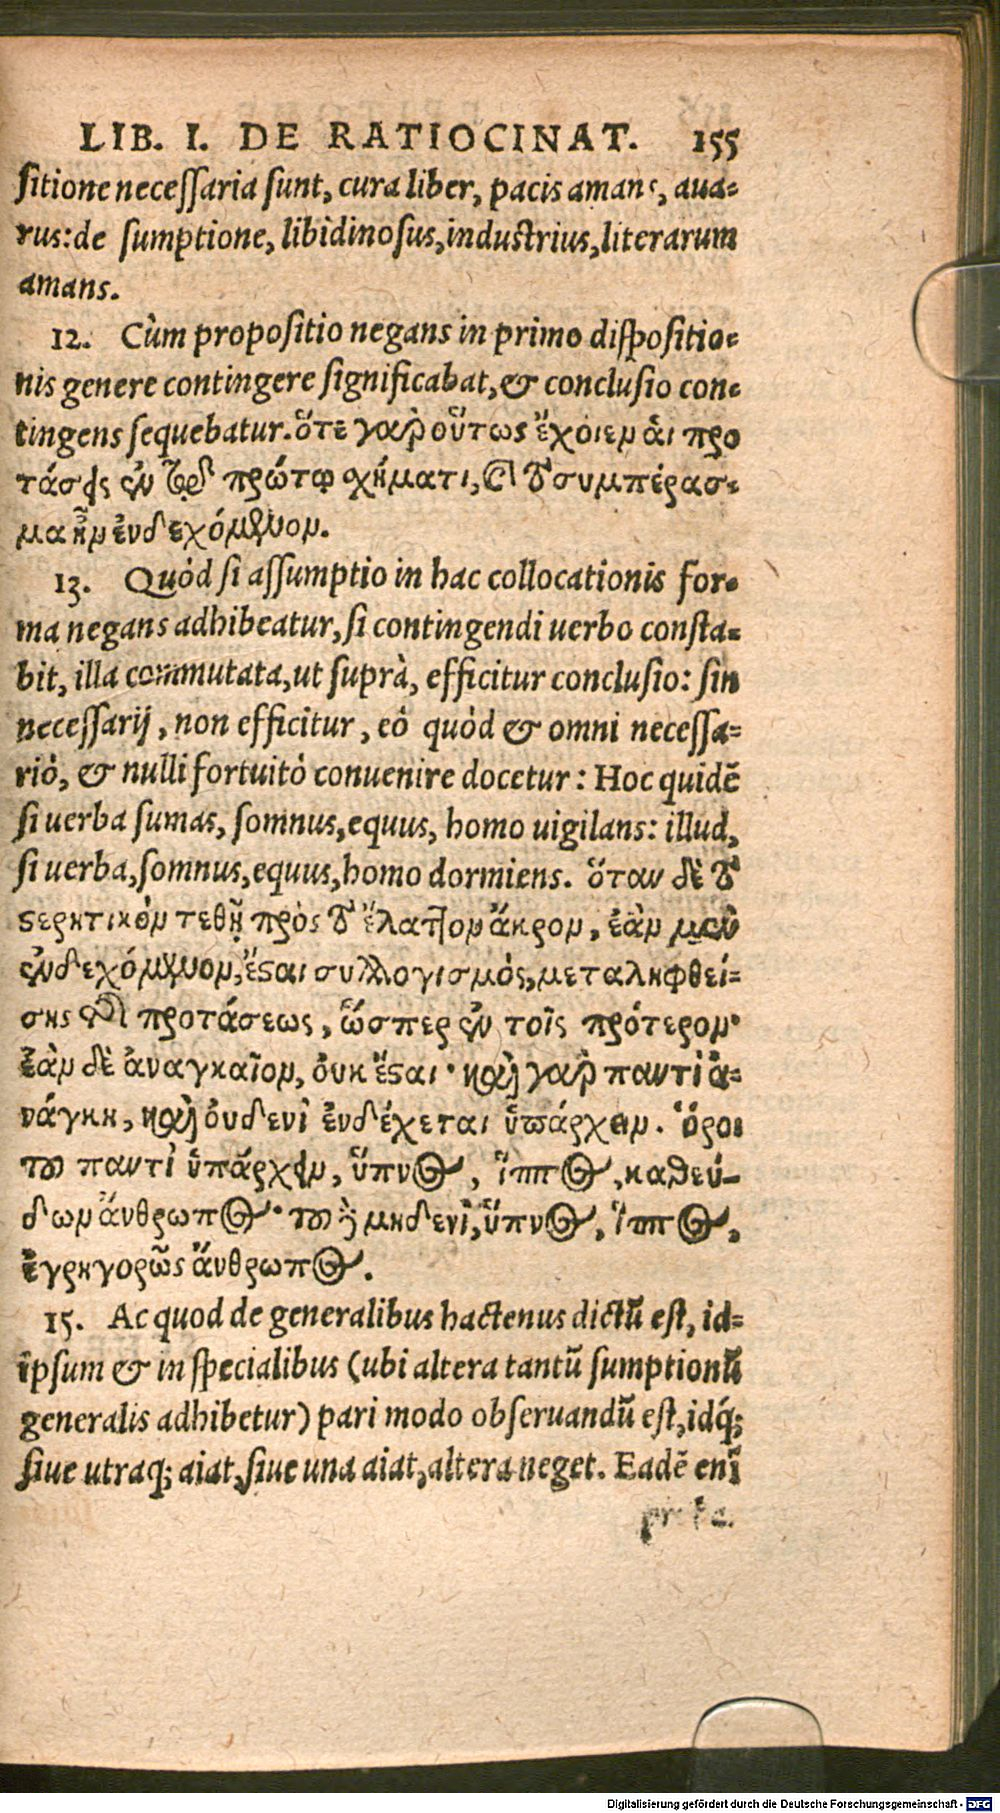 LIB. I. DE RATIOCINAT. 155
sitione necessaria sunt, cura liber, pacis amans, aua-
rus: de sumptione, libidinosus, industrius, literarum
amans.
12. Cùm propositio negans in primo dispositio-
nis genere contingere significabat, & conclusio con-
tingens sequebatur. ὅτε γὰρ οὕτως ἔχοιεν αἱ προ
τάσεις ἐν τῷ πρώτῳ σχήματι, καὶ τὸ συμπέρασ-
μα ἦν ἐνδεχόμενον.
13. Quòd si assumptio in hac collocationis for-
ma negans adhibeatur, si contingendi uerbo consta-
bit, illa commutata, ut suprà, efficitur conclusio: sin
necessarij, non efficitur, eò quòd & omni necessa-
riò, & nulli fortuitò conuenire docetur: Hoc quidē
si uerba sumas, somnus, equus, homo uigilans: illud,
si uerba, somnus, equus, homo dormiens. ὅταν δὲ τὸ
στερητικὸν τεθῇ πρὸς τὸ ἔλαττον ἄκρον, ἐὰν μὲν
ἐνδεχόμενον, ἔσται συλλογισμὸς, μεταληφθεί-
σης τῆς προτάσεως, ὥσπερ ἐν τοῖς πρότερον·
ἐὰν δὲ ἀναγκαῖον, οὐκ ἔσται· καὶ γὰρ παντὶ ἀ-
νάγκη, καὶ οὐδενὶ ἐνδέχεται ὑπάρχειν. ὅροι
τοῦ παντὶ ὑπάρχειν, ὕπνος, ἵππος, καθεύ-
δων ἄνθρωπος· τοῦ δὲ μηδενὶ, ὕπνος, ἵππος,
ἐγρηγορῶς ἄνθρωπος.
15. Ac quod de generalibus hactenus dictū est, id-
ipsum & in specialibus (ubi altera tantū sumptionū
generalis adhibetur) pari modo obseruandū est, idq́;
siue utraq; aiat, siue una aiat, altera neget. Eadē enī